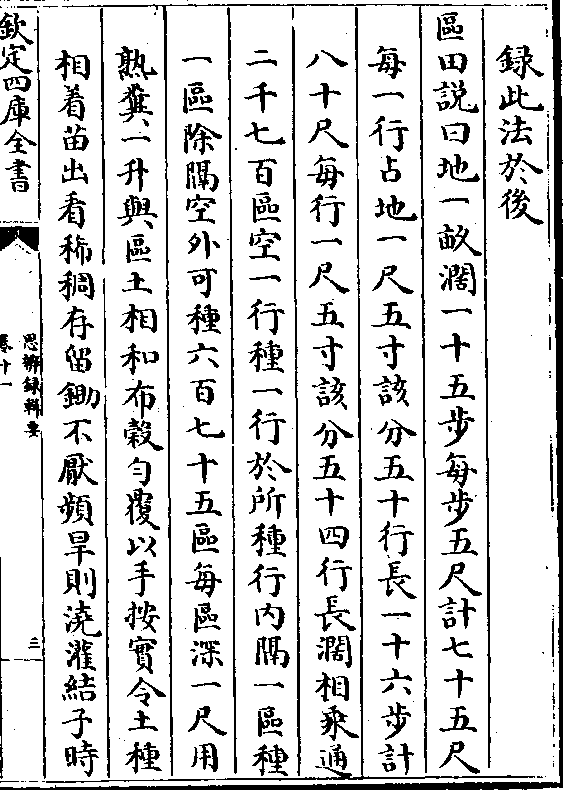 録此法於後
區田説曰地一畝濶一十五步每步五尺計七十五尺
每一行占地一尺五寸該分五十行長一十六步計
八十尺每行一尺五寸該分五十四行長濶相乘通
二千七百區空一行種一行於所種行内隔一區種
一區除隔空外可種六百七十五區每區深一尺用
熟糞一升與區土相和布榖勻覆以手按實令土種
相着苗出看稀稠存留鋤不厭頻旱則澆灌結子時
欽定四庫全書
思辨録輯要
卷十一
三